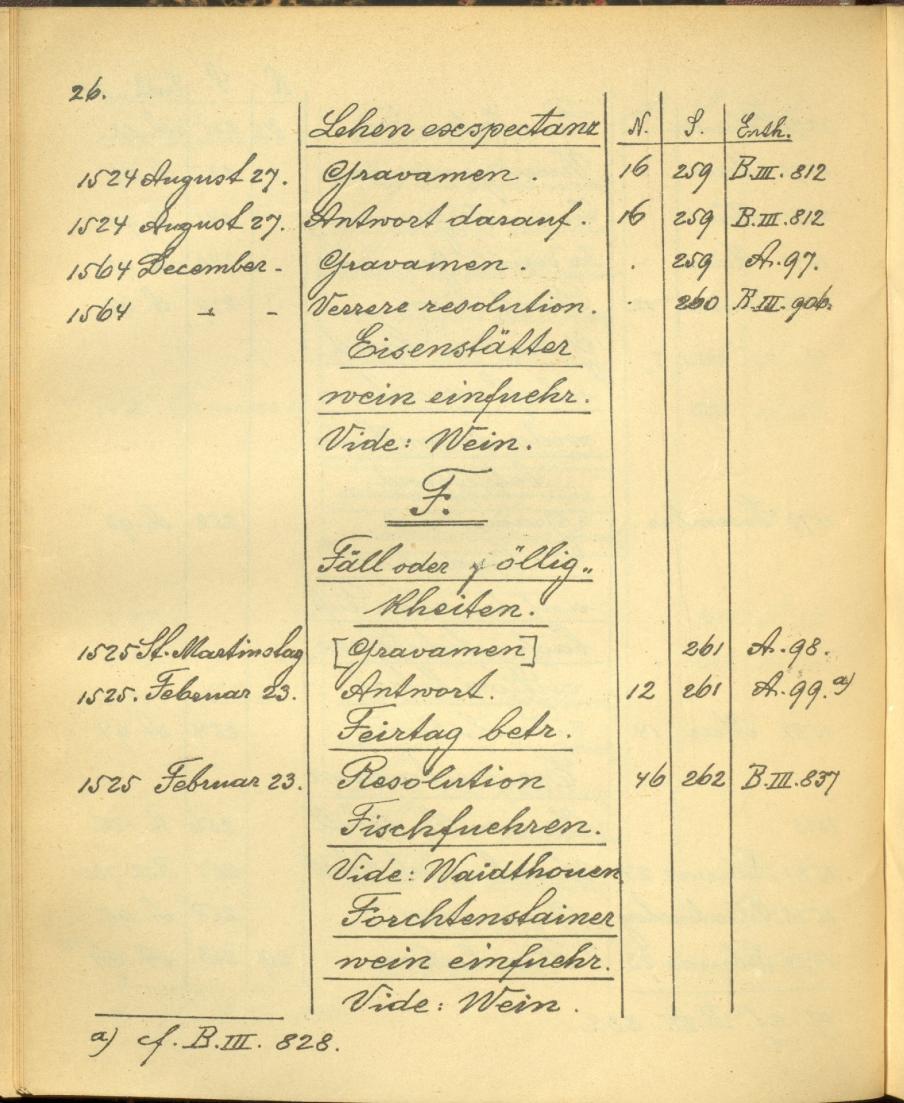 26.
Lehen exspectanz N. S. Enth.
1524 August 27. Gravamen. 16 259 B.III. 812
1524 August 27. Antwort darauf. 16 259 B.III. 812
1564 December - Gravamen. . 259 A. 97.
1564 - - Verrere resolution. . 260 B.III. 906.
Eisenstätter
wein einfuehr.
Vide: Wein.
F.
Fäll oder föllig„
kheiten.
1525 St. Martinstag [Gravamen] 261 A. 98.
1525. Febenar 23. Antwort. 12 261 A. 99. a)
Feirtag betr.
1525 Februar 23. Resolution 46 262 B.III. 837
Fischfuehren.
Vide: Waidthouen.
Forchtenstainer
wein einfuehr.
Vide: Wein.
a) cf. B.III. 828.